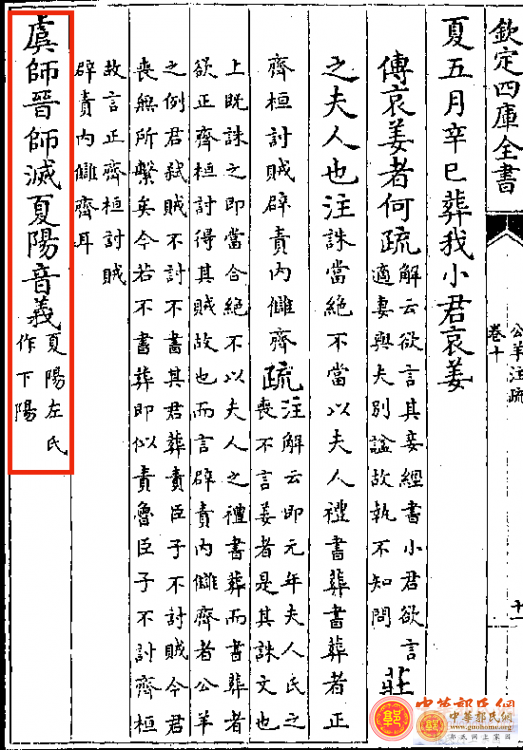 欽定四庫全書
公羊注疏
卷十
十一
夏五月辛巳葬我小君哀姜
傳哀姜者何疏
解云欲言其妾經書小君欲言
適妻與夫別諡故執不知問
莊
之夫人也注誅當絶不當以夫人禮書葬書葬者正
齊桓討賊辟責内讎齊疏
注解云即元年夫人氏之
喪不言姜者是其誅文也
上既誅之即當合絶不以夫人之禮書葬而書葬者
欲正齊桓討得其賊故也而言辟責内讎齊者公羊
之例君弑賊不討不書其君葬責臣子不討賊今君
喪無所繫矣今若不書葬即似責魯臣子不討齊桓
故言正齊桓討賊
辟責内讎齊耳
虞師晉師滅夏陽音義
夏陽左氏
作下陽
中華郭氏網